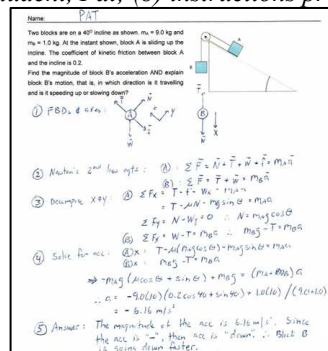 Name: PAT
Two blocks are on a 40° incline as shown. mA = 9.0 kg and
mB = 1.0 kg. At the instant shown, block A is sliding up the
incline. The coefficient of kinetic friction between block A
and the incline is 0.2.
Find the magnitude of block B's acceleration AND explain
block B's motion, that is, in which direction is it travelling
and is it speeding up or slowing down?
① FBDs & axes:
② Newton's 2nd law eqts: (A): ΣF = N + T + W + f = mAa
(B): ΣF = T + W = mBa
③ Decompose x & y: (A) ΣFx = T - f - Wx = mAa
= T - μN - mg sin θ = mAa
ΣFy = N - Wy = 0 ∴ N = mAg cos θ
(B) ΣFx = W - T = mBa ∴ mBg - T = mBa
④ Solve for acc: (A)x: T - μ(mAg cos θ) - mAg sin θ = mAa
(B)x: mBg - T = mBa
⇒ -mAg (μ cos θ + sin θ) + mBg = (mA + mB) a
∴ a = -9.0(10)(0.2 cos 40 + sin 40) + 1.0(10) / (9.0+1.0)
= -6.16 m/s²
⑤ Answer: The magnitude of the acc is 6.16 m/s². Since
the acc is "-", then acc is "down" ∴ Block B
is going down faster.